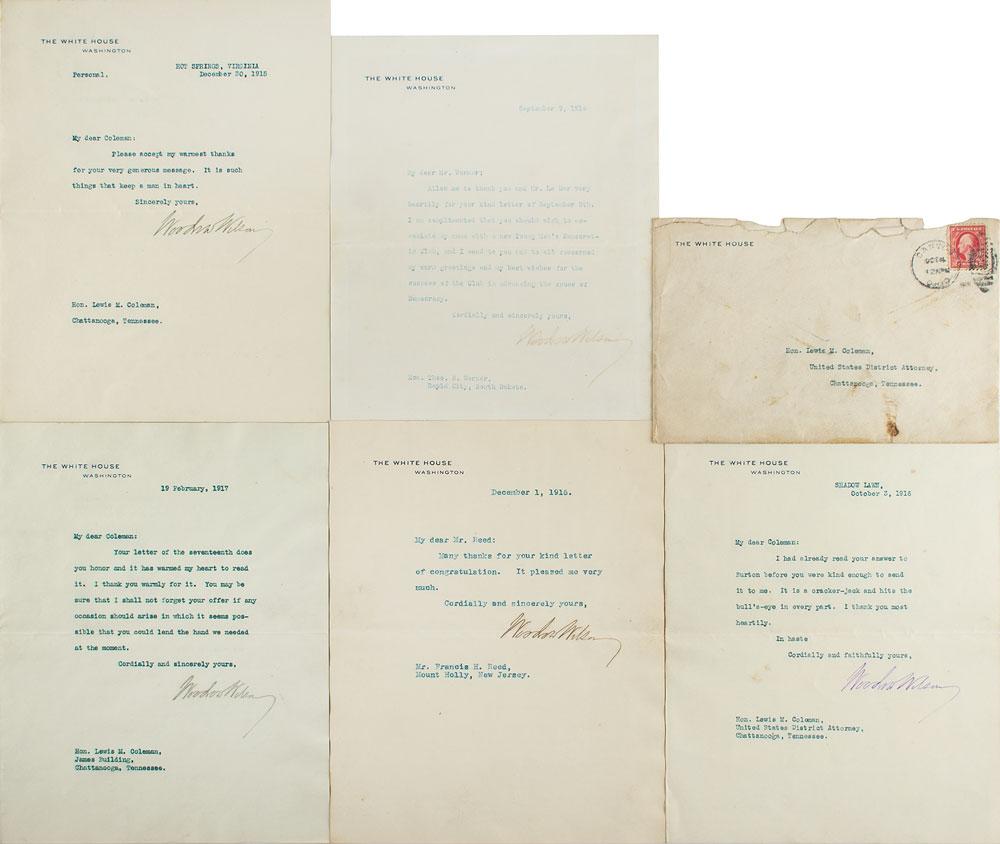 THE WHITE HOUSE
WASHINGTON
HOT SPRINGS, VIRGINIA
Personal. December 30, 1915
My dear Coleman:
Please accept my warmest thanks
for your very generous message. It is such
things that keep a man in heart.
Sincerely yours,
Woodrow Wilson
Hon. Lewis M. Coleman,
Chattanooga, Tennessee.
THE WHITE HOUSE
WASHINGTON
September 9, 1914
My dear Mr. Werner:
Allow me to thank you and Mr. Le Mar very
heartily for your kind letter of September 5th.
I am complimented that you should wish to as-
sociate my name with a new Young Men's Democrat-
ic Club, and I send to you and to all concerned
my warm greetings and my best wishes for the
success of the Club in advancing the cause of
Democracy.
Cordially and sincerely yours,
Woodrow Wilson
Hon. Theo. B. Werner,
Rapid City, South Dakota.
THE WHITE HOUSE
Hon. Lewis M. Coleman,
United States District Attorney,
Chattanooga, Tennessee.
THE WHITE HOUSE
WASHINGTON
19 February, 1917
My dear Coleman:
Your letter of the seventeenth does
you honor and it has warmed my heart to read
it. I thank you warmly for it. You may be
sure that I shall not forget your offer if any
occasion should arise in which it seems pos-
sible that you could lend the hand we needed
at the moment.
Cordially and sincerely yours,
Woodrow Wilson
Hon. Lewis M. Coleman,
James Building,
Chattanooga, Tennessee.
THE WHITE HOUSE
WASHINGTON
December 1, 1916.
My dear Mr. Reed:
Many thanks for your kind letter
of congratulation. It pleased me very
much.
Cordially and sincerely yours,
Woodrow Wilson
Mr. Francis H. Reed,
Mount Holly, New Jersey.
THE WHITE HOUSE
WASHINGTON
SHADOW LAWN,
October 3, 1916
My dear Coleman:
I had already read your answer to
Burton before you were kind enough to send
it to me. It is a cracker-jack and hits the
bull's-eye in every part. I thank you most
heartily.
In haste
Cordially and faithfully yours,
Woodrow Wilson
Hon. Lewis M. Coleman,
United States District Attorney,
Chattanooga, Tennessee.